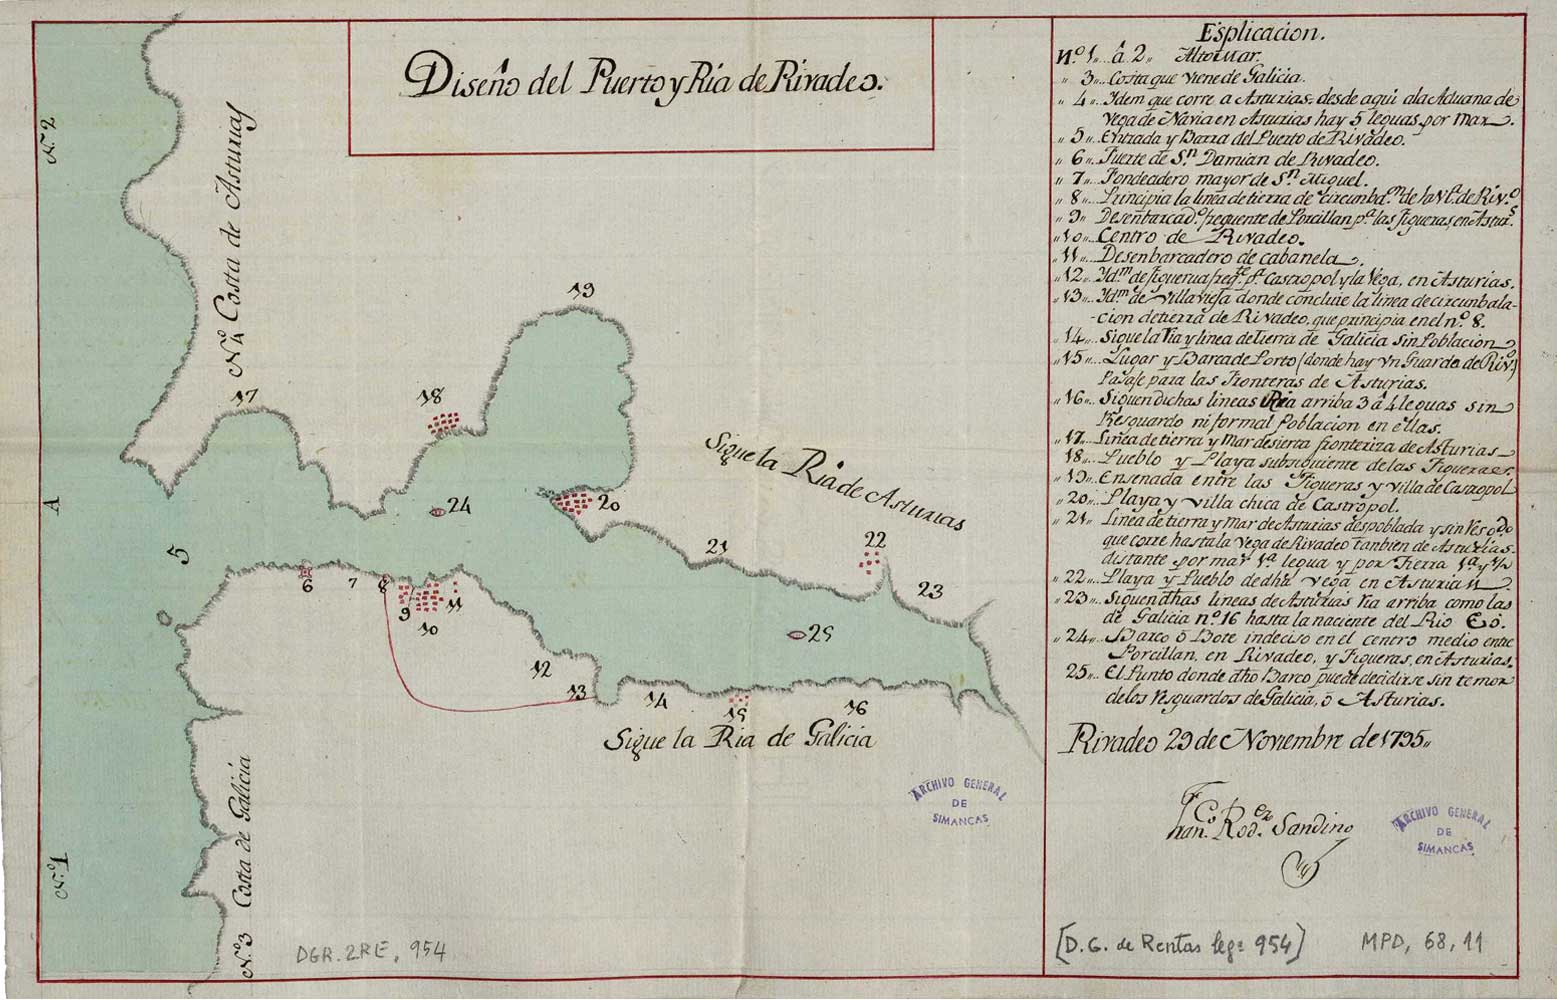 Diseño del Puerto y Ría de Rivadeo.
Nº 2
Nº 4 Costa de Asturias
A
5
Nº 1
Nº 3 Costa de Galicia
17
18
19
20
24
Sigue la Ria de Asturias
21
22
23
6
7
8
9
10
11
12
13
14
15
16
25
Sigue la Ria de Galicia
ARCHIVO GENERAL
DE
SIMANCAS
DGR. 2RE, 954
Esplicacion.
Nº 1,, á 2,, Alto Mar.
,, 3,, Costa que viene de Galicia.
,, 4,, Ydem que corre a Asturias, desde aquí ala Aduana de
Vega de Navia en Asturias hay 5 leguas por mar.
,, 5,, Entrada y Barra del Puerto de Rivadeo.
,, 6,, Fuerte de Sn. Damian de Rivadeo.
,, 7,, Fondeadero mayor de Sn. Miguel.
,, 8,, Principia la linea de tierra de circunbon. de la Va. de Rivo.
,, 9,, Desenbarcado. frequente de Porcillan pa. las Figueras, en Asturs.
,, 10,, Centro de Rivadeo.
,, 11,, Desenbarcadero de cabanela.
,, 12,, Ydm. de Figueirua freqte. pa. Castropol y la Vega, en Asturias.
,, 13,, Ydm. de Villavieja donde concluie la linea de circunbala-
-cion de tierra de Rivadeo, que principia en el nº 8.
,, 14,, Sigue la Ria y linea de tierra de Galicia sin Poblacion
,, 15,, Lugar y Barca de Porto (donde hay vn Guarda de Rivo.)
Pasaje para las Fronteras de Asturias.
,, 16,, Siguen dichas lineas Ria arriba 3 á 4 leguas sin
Resguardo ni formal Poblacion en ellas.
,, 17,, Linea de tierra y Mar desierta fronteriza de Asturias
18,, Pueblo y Playa subsiguiente de las Figueras.
,, 19,, Ensenada entre las Figueras y Villa de Castropol
,, 20,, Playa y Villa chica de Castropol.
,, 21,, Linea de tierra y mar de Asturias despoblada y sin Resgdo.
que corre hasta la Vega de Rivadeo tanbien de Asturias
distante por mar 1ª legua y por tierra 1ª y ½
,, 22,, Playa y Pueblo de dha Vega en Asturias
,, 23,, Siguen dhas lineas de Asturias ria arriba como las
de Galicia nº 16 hasta la naciente del Rio Eó.
,, 24,, Barco ó Bote indeciso en el centro medio entre
Porcillan, en Rivadeo, y Figueras, en Asturias.
25,, El Punto donde dho Barco puede decidirse sin temor
de los resguardos de Galicia, ó Asturias.
Rivadeo 29 de Noviembre de 1795,,
Franco. Rodez. Sandino
ARCHIVO GENERAL
DE
SIMANCAS
[D.G. de Rentas legº 954]
MPD, 68, 11